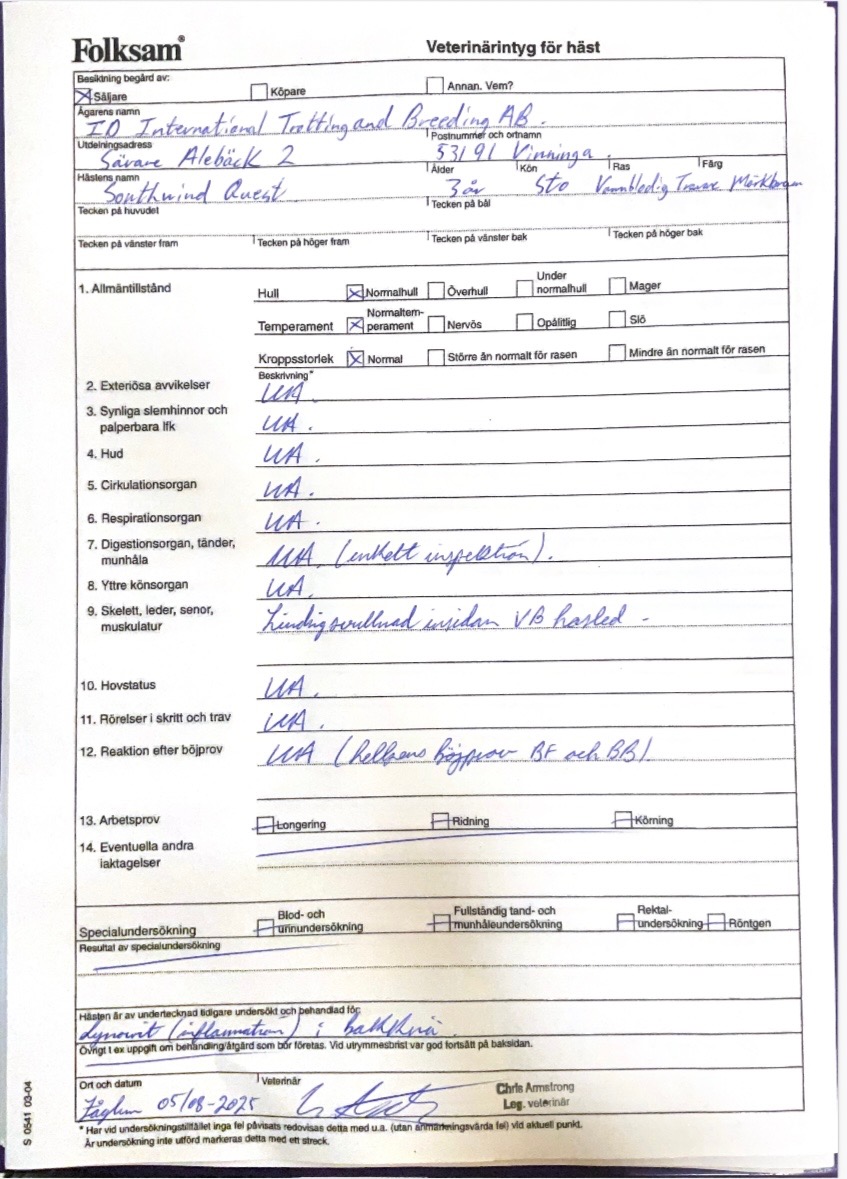 Folksam®
Veterinärintyg för häst
Besiktning begärd av:
Säljare Köpare Annan. Vem?
Ägarens namn
IO International Trotting and Breeding AB.
Utdelningsadress Postnummer och ortnamn
Sävare Alebäck 2 531 91 Vinninga.
Hästens namn Ålder Kön Ras Färg
Southwind Quest 3 år Sto Varmblodig Travare Mörkbrun
Tecken på huvudet Tecken på bål
Tecken på vänster fram Tecken på höger fram Tecken på vänster bak Tecken på höger bak
1. Allmäntillstånd
Hull Normalhull Överhull Under normalhull Mager
Temperament Normaltem-perament Nervös Opålitlig Slö
Kroppsstorlek Normal Större än normalt för rasen Mindre än normalt för rasen
Beskrivning*
2. Exteriösa avvikelser UA.
3. Synliga slemhinnor och
palperbara lfk UA.
4. Hud UA.
5. Cirkulationsorgan UA.
6. Respirationsorgan UA.
7. Digestionsorgan, tänder,
munhåla UA. (enkelt inspektion).
8. Yttre könsorgan UA.
9. Skelett, leder, senor,
muskulatur Lindrig svullnad insidan VB hasled -
10. Hovstatus UA.
11. Rörelser i skritt och trav UA.
12. Reaktion efter böjprov UA (helbens böjprov BF och BB).
13. Arbetsprov Longering Ridning Körning
14. Eventuella andra
iaktagelser
Specialundersökning Blod- och urinundersökning Fullständig tand- och munhåleundersökning Rektal-undersökning Röntgen
Resultat av specialundersökning
Hästen är av undertecknad tidigare undersökt och behandlad för:
Synovit (inflammation) i bakknä.
Övrigt t ex uppgift om behandling/åtgärd som bör företas. Vid utrymmesbrist var god fortsätt på baksidan.
Ort och datum Veterinär
05/08-2025
Chris Armstrong
Leg. veterinär
* Har vid undersökningstillfället inga fel påvisats redovisas detta med u.a. (utan anmärkningsvärda fel) vid aktuell punkt.
Är undersökning inte utförd markeras detta med ett streck.
S 0541 03-04